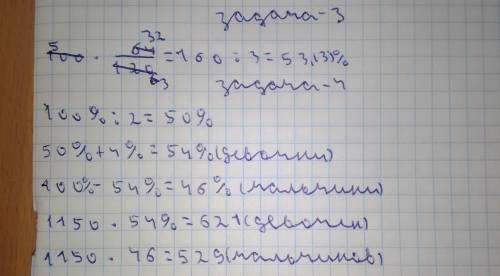 задача-3
5 32
100 · 64/120 = 160 : 3 = 53,(3)%
6 3
задача-4
100% : 2 = 50%
50% + 4% = 54% (девочки)
100% - 54% = 46% (мальчики)
1150 · 54% = 621 (девочек)
1150 · 46 = 529 (мальчиков)